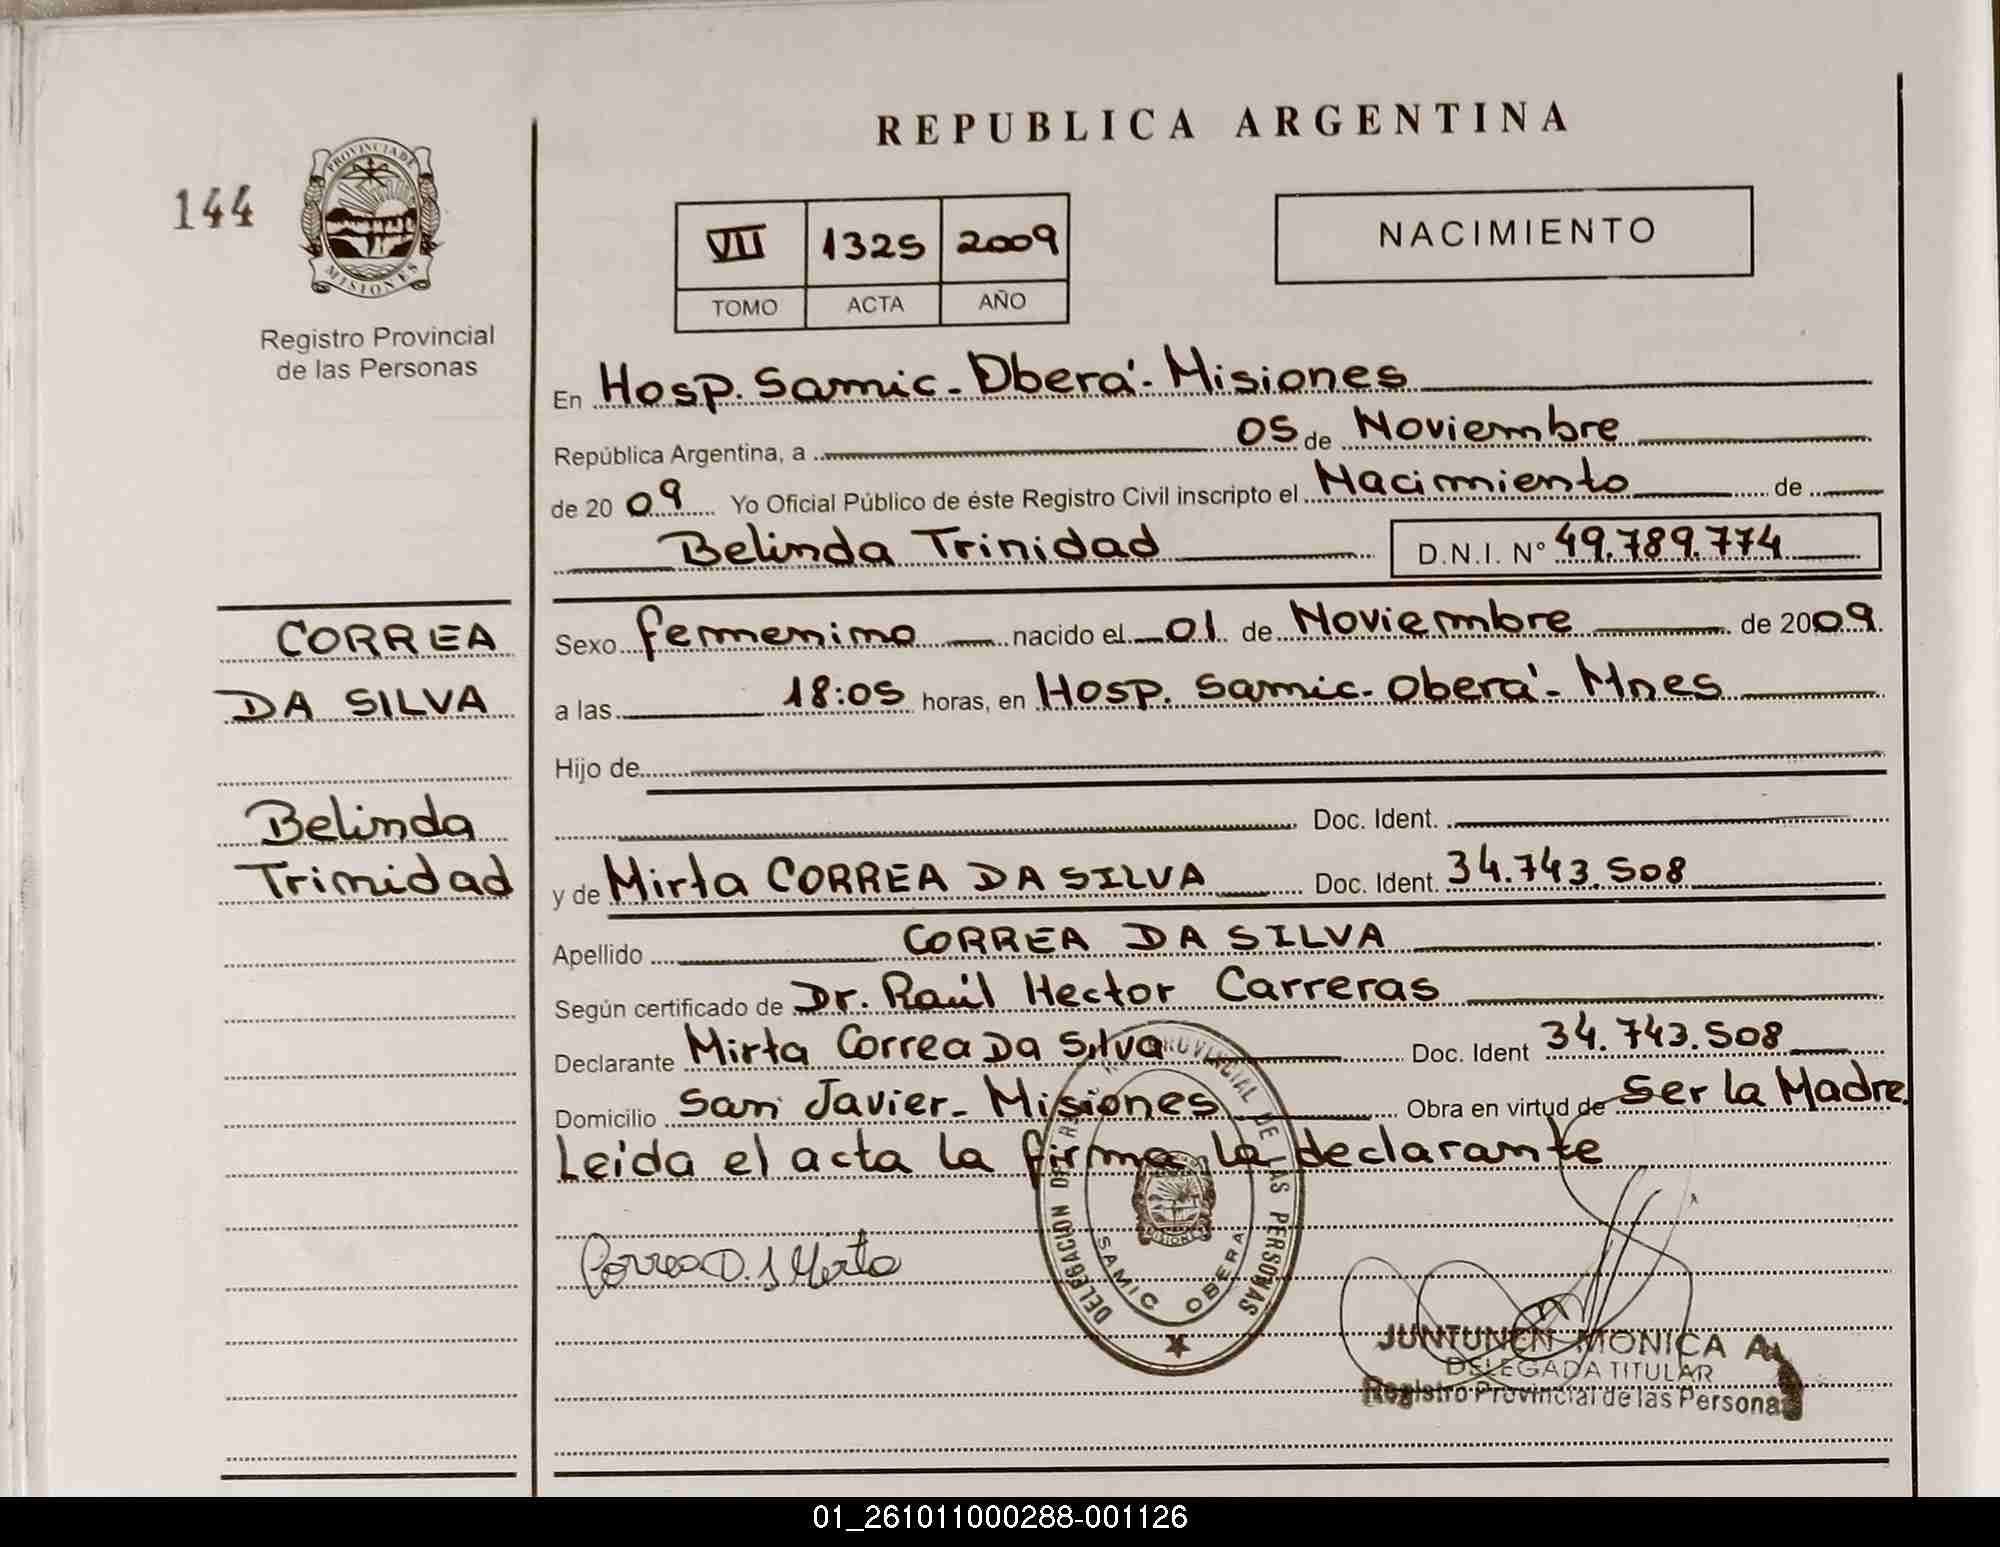 REPUBLICA ARGENTINA
144
PROVINCIA DE
MISIONES
Registro Provincial
de las Personas
VII 1325 2009
TOMO ACTA AÑO
NACIMIENTO
En Hosp. Samic - Oberá - Misiones
República Argentina, a 05 de Noviembre
de 2009 Yo Oficial Público de éste Registro Civil inscripto el Nacimiento de
Belinda Trinidad D.N.I. Nº 49.789.774
CORREA
DA SILVA
Belinda
Trinidad
Sexo femenino nacido el 01 de Noviembre de 2009
a las 18:05 horas, en Hosp. Samic - Oberá - Mnes
Hijo de
Doc. Ident.
y de Mirta CORREA DA SILVA Doc. Ident. 34.743.508
Apellido CORREA DA SILVA
Según certificado de Dr. Raúl Hector Carreras
Declarante Mirta Correa Da Silva Doc. Ident 34.743.508
Domicilio San Javier - Misiones Obra en virtud de Ser la Madre.
Leida el acta la firma la declarante
Correa D. S Mirta
DELEGACION DEL R. PROVINCIAL DE LAS PERSONAS
MISIONES
SAMIC OBERA
JUNTUNEN MONICA A.
DELEGADA TITULAR
Registro Provincial de las Personas
01_261011000288-001126